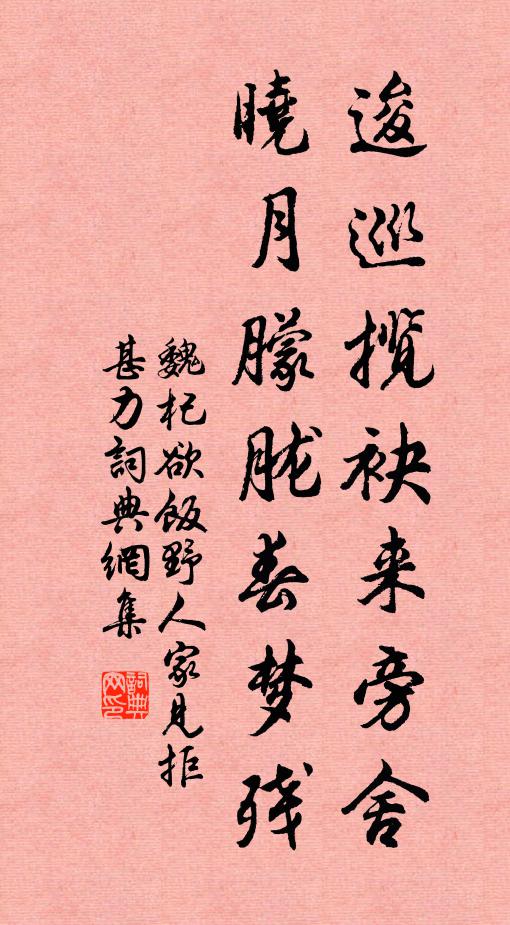 逡巡揽袂来旁舍
曉月朦胧春梦残
魏杞欲飯野人家見拒
甚力詞典網集
詞典
网印